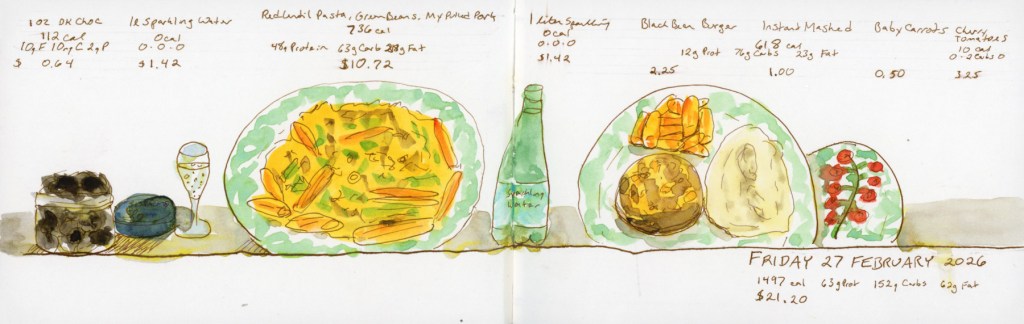 1 oz DK Choc
112 cal
10g F 10mg C 2g P
$ 0.64
1L Sparkling Water
0cal
0-0-0
$1.42
Red Lentil Pasta, Green Beans, My Pulled Pork
736 cal
48g Protein 63g Carb 28g Fat
$10.72
1 Liter Sparkling
0 cal
0-0-0
$1.42
Black Bean Burger
Instant Mashed
61.8 cal
12g Prot 76g Carbs 23g Fat
2.25
1.00
Baby Carrots
0.50
Cherry
Tomatoes
10 cal
0-2 Carbs 0
3.25
Sparkling
Water
FRIDAY 27 FEBRUARY 2026
1497 cal 63g Prot 152g Carbs 62g Fat
$21.20